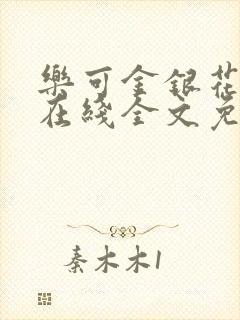 樂可金銀花
在綫全文免
秦木木1